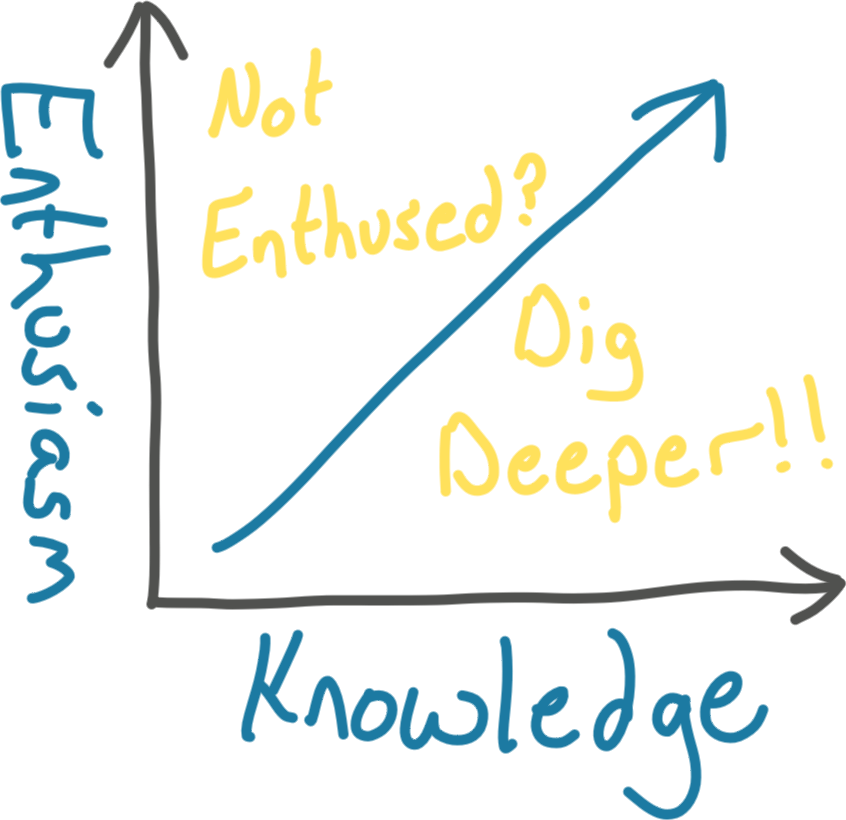 Enthusiasm
Not
Enthused?
Dig
Deeper!!
Knowledge